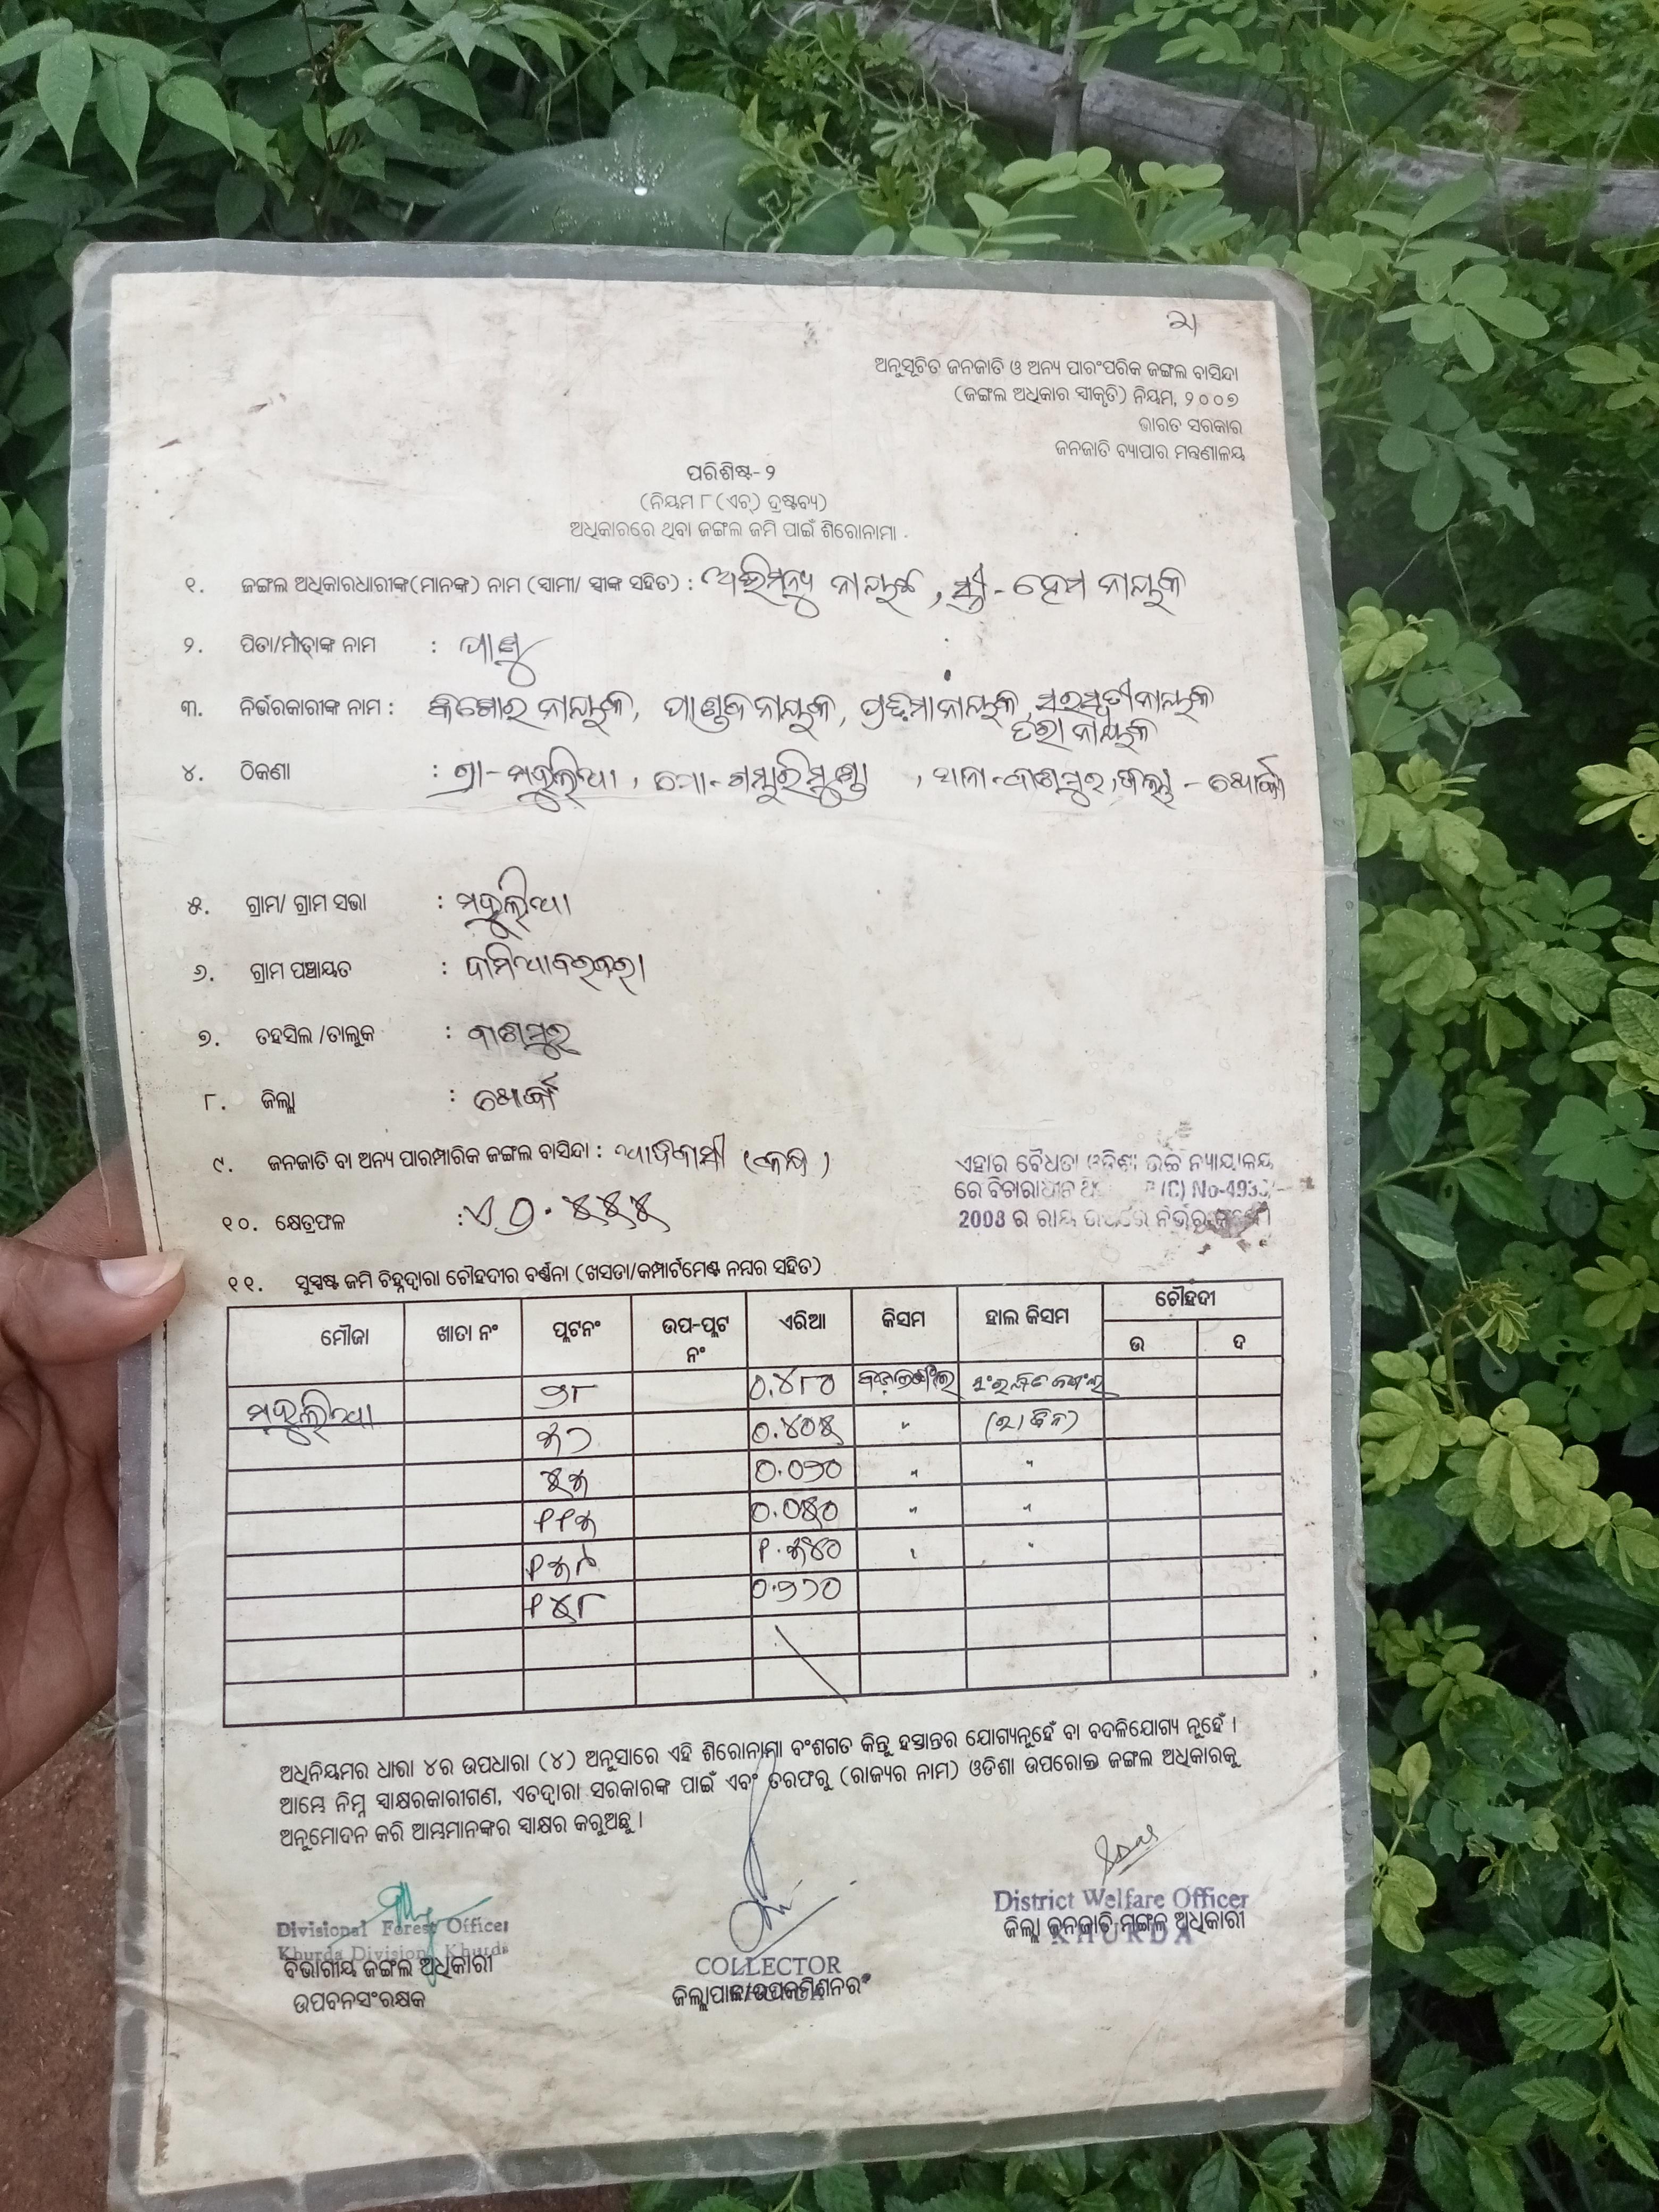 ୨/
ଅନୁସୂଚିତ ଜନଜାତି ଓ ଅନ୍ୟ ପାରଂପରିକ ଜଙ୍ଗଲ ବାସିନ୍ଦା
(ଜଙ୍ଗଲ ଅଧିକାର ସ୍ୱୀକୃତି) ନିୟମ, ୨୦୦୭
ଭାରତ ସରକାର
ଜନଜାତି ବ୍ୟାପାର ମନ୍ତ୍ରଣାଳୟ
ପରିଶିଷ୍ଟ-୨
(ନିୟମ ୮(ଏଚ୍) ଦ୍ରଷ୍ଟବ୍ୟ)
ଅଧିକାରରେ ଥିବା ଜଙ୍ଗଲ ଜମି ପାଇଁ ଶିରୋନାମା .
୧. ଜଙ୍ଗଲ ଅଧିକାରଧାରୀଙ୍କ(ମାନଙ୍କ) ନାମ (ସ୍ୱାମୀ/ ସ୍ତ୍ରୀଙ୍କ ସହିତ) : ଅଭିମନ୍ୟୁ ନାୟକ, ସ୍ତ୍ରୀ - ହେମ ନାୟକ
୨. ପିତା/ମାତାଙ୍କ ନାମ : ପାଣୁ
୩. ନିର୍ଭରକାରୀଙ୍କ ନାମ : କିଶୋର ନାୟକ, ପାଣ୍ଡବ ନାୟକ, ପ୍ରତିମା ନାୟକ, ସରସ୍ୱତୀ ନାୟକ
ନାୟକ
୪. ଠିକଣା : ଗ୍ରା - ମହୁଲିଆ, ପୋ - ଗମ୍ଭାରିମୁଣ୍ଡା, ଥାନା - ବାଣପୁର, ଜିଲ୍ଲା - ଖୋର୍ଦ୍ଧା
୫. ଗ୍ରାମ/ ଗ୍ରାମ ସଭା : ମହୁଲିଆ
୬. ଗ୍ରାମ ପଞ୍ଚାୟତ : ଦାମିଆବରବରା
୭. ତହସିଲ /ତାଲୁକ : ବାଣପୁର
୮. ଜିଲ୍ଲା : ଖୋର୍ଦ୍ଧା
୯. ଜନଜାତି ବା ଅନ୍ୟ ପାରମ୍ପାରିକ ଜଙ୍ଗଲ ବାସିନ୍ଦା : ଆଦିବାସୀ (କନ୍ଧ)
ଏହାର ବୈଧତା ଓଡ଼ିଶା ଉଚ୍ଚ ନ୍ୟାୟାଳୟ
ରେ ବିଚାରାଧୀନ (C) No-493
2008 ର ରାୟ ଉପରେ ନିର୍ଭର
୧୦. କ୍ଷେତ୍ରଫଳ : ଏ ୦.୫୫୫
୧୧. ସୁସ୍ପଷ୍ଟ ଜମି ଚିହ୍ନଦ୍ୱାରା ଚୌହଦୀର ବର୍ଣ୍ଣନା (ଖସଡା/କମ୍ପାର୍ଟମେଣ୍ଟ ନମ୍ବର ସହିତ)
ମୌଜା ଖାତା ନଂ ପ୍ଲଟନଂ ଉପ-ପ୍ଲଟ ନଂ ଏରିଆ କିସମ ହାଲ କିସମ ଚୌହଦୀ
ଉ ଦ
ମହୁଲିଆ ୭୮ ୦.୪୮୦ ସଂରକ୍ଷିତ ଜଙ୍ଗଲ
୦.୪୦୫ "
୦.୦୭୦ " "
୦.୦୫୦ " "
" "
୧୫୮ ୦.୭୨୦
ଅଧିନିୟମର ଧାରା ୪ର ଉପଧାରା (୪) ଅନୁସାରେ ଏହି ଶିରୋନାମା ବଂଶଗତ କିନ୍ତୁ ହସ୍ତାନ୍ତର ଯୋଗ୍ୟନୁହେଁ ବା ବଦଳିଯୋଗ୍ୟ ନୁହେଁ ।
ଆମ୍ଭେ ନିମ୍ନ ସ୍ୱାକ୍ଷରକାରୀଗଣ, ଏତଦ୍ୱାରା ସରକାରଙ୍କ ପାଇଁ ଏବଂ ତରଫରୁ (ରାଜ୍ୟର ନାମ) ଓଡିଶା ଉପରୋକ୍ତ ଜଙ୍ଗଲ ଅଧିକାରକୁ
ଅନୁମୋଦନ କରି ଆମ୍ଭମାନଙ୍କର ସ୍ୱାକ୍ଷର କରୁଅଛୁ ।
Divisional Forest Officer
Khurda Division, Khurda
ବିଭାଗୀୟ ଜଙ୍ଗଲ ଅଧିକାରୀ
ଉପବନସଂରକ୍ଷକ
COLLECTOR
ଜିଲ୍ଲାପାଳ/ଉପକମିଶନର
District Welfare Officer
KHURDA
ଜିଲ୍ଲା ଜନଜାତି ମଙ୍ଗଳ ଅଧିକାରୀ